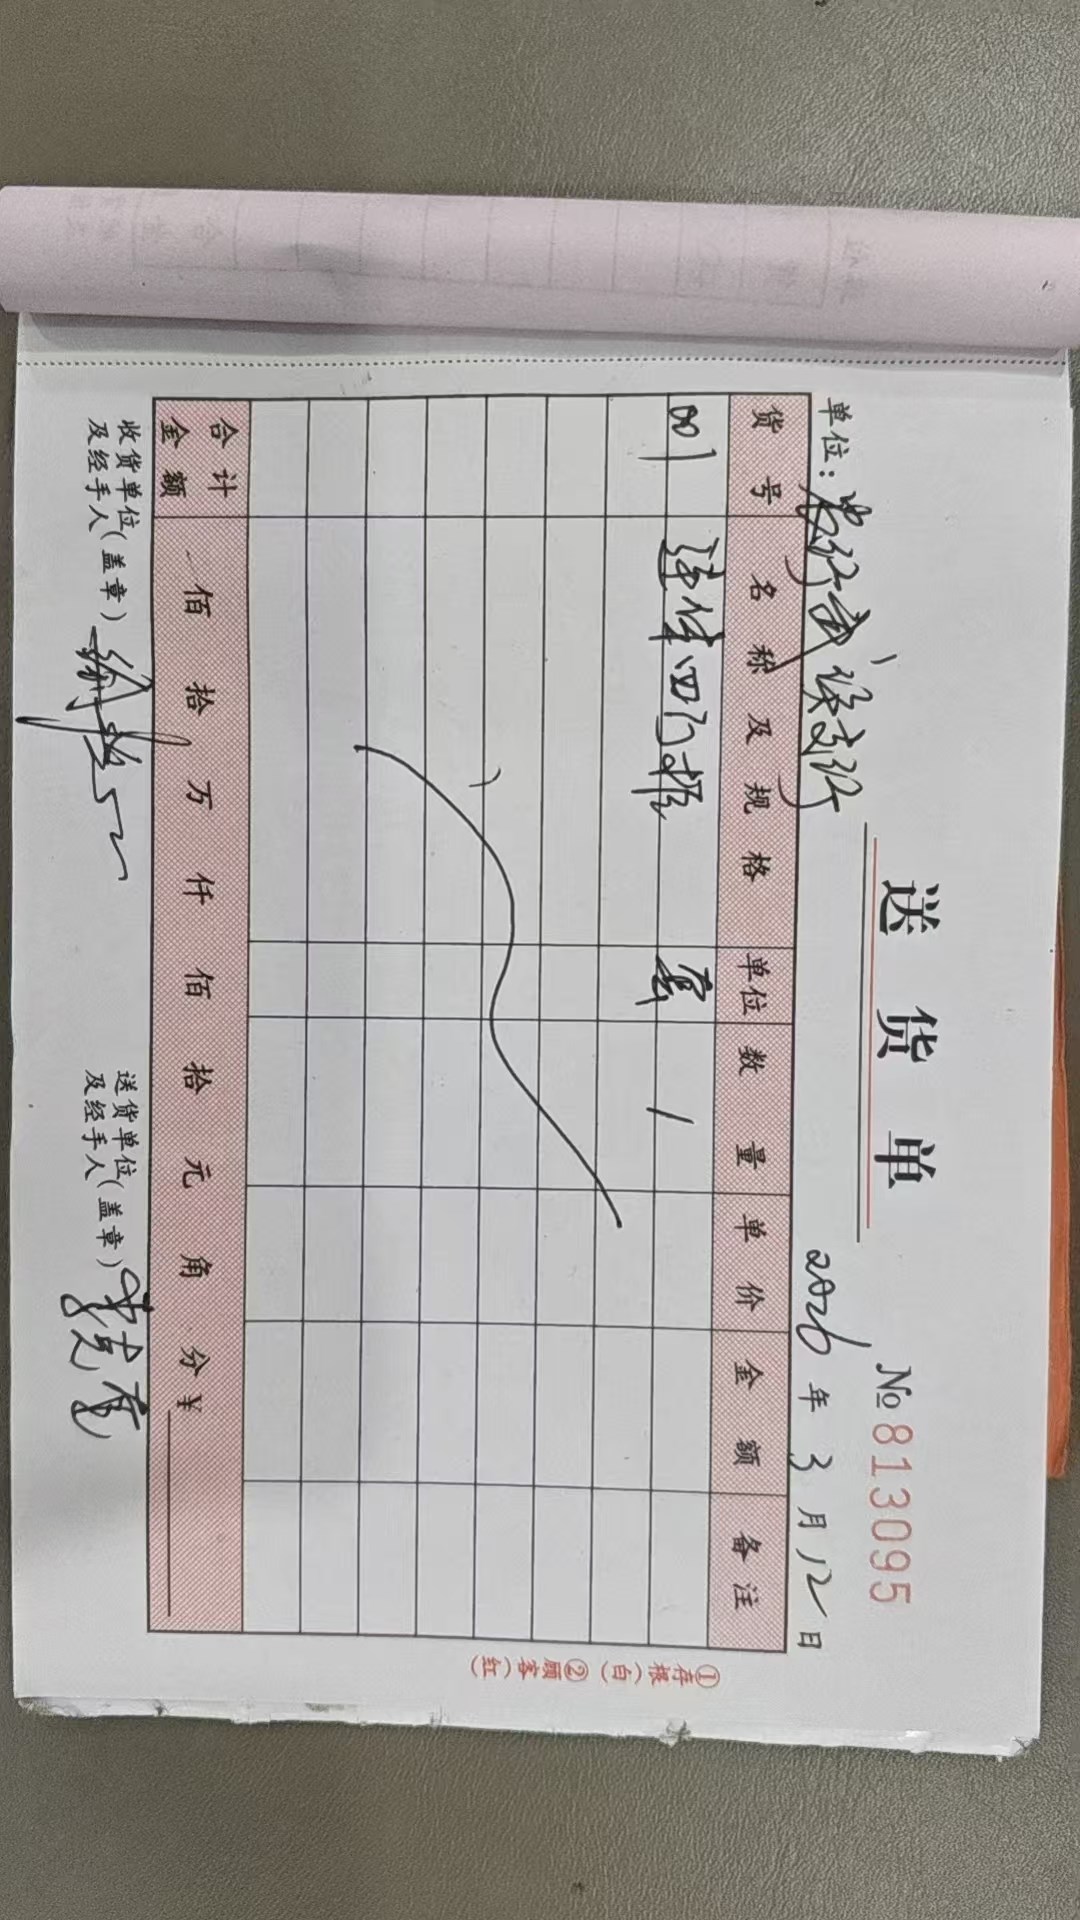 送货单
№8113095
单位：农行武侯支行
2026年3月12日
货号 名称及规格 单位 数量 单价 金额 备注
001 连体四门 套 1
合计金额 佰 拾 万 仟 佰 拾 元 角 分 ¥
收货单位及经手人（盖章）
送货单位及经手人（盖章）
①存根（白）②顾客（红）